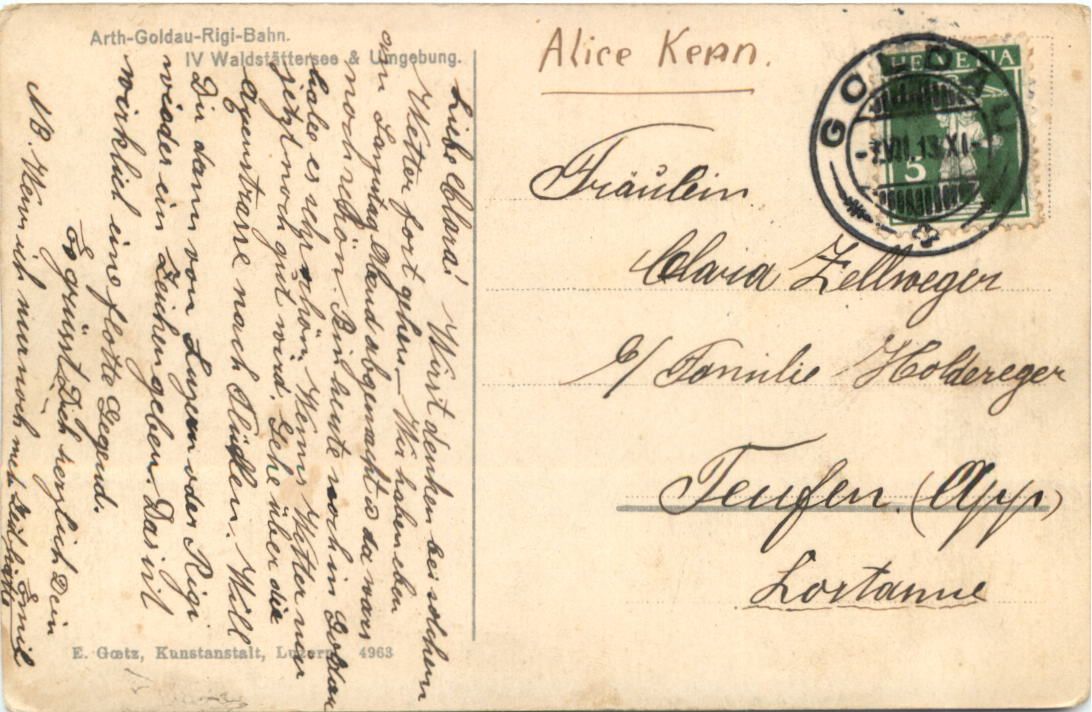 Arth-Goldau-Rigi-Bahn.
IV Waldstättersee & Umgebung.
Alice Kern.
HELVETIA
5
GOLDAU
-7.VII.13.XI-
Fräulein
Clara Zellweger
c/ Familie Holdereger
Teufen. (App)
Lortanne
Liebe Clara! Wirst denken bei solchem
Wetter fort gehen. – Wir haben eben
am Samstag Abend abgemacht & da wars
noch schön. Bin heute noch in Goldau
habe es sehr schön. Wenns Wetter nur
jetzt noch gut wird. Gehe über die
Axenstrasse nach Flüelen. Will
Dir dann von Luzern oder Rigi
wieder ein Zeichen geben. Das ist
wirklich eine flotte Gegend.
Es grüsst Dich herzlich Dein
Emil
NB. Wenn ich nur noch mehr
E. Gœtz, Kunstanstalt, Luzern. 4963